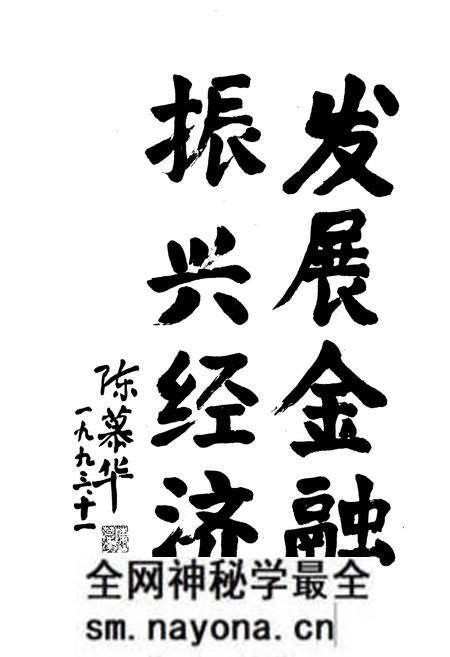 发展金融
振兴经济
陈慕华
一九九三·十一
全网神秘学最全
sm.nayona.cn